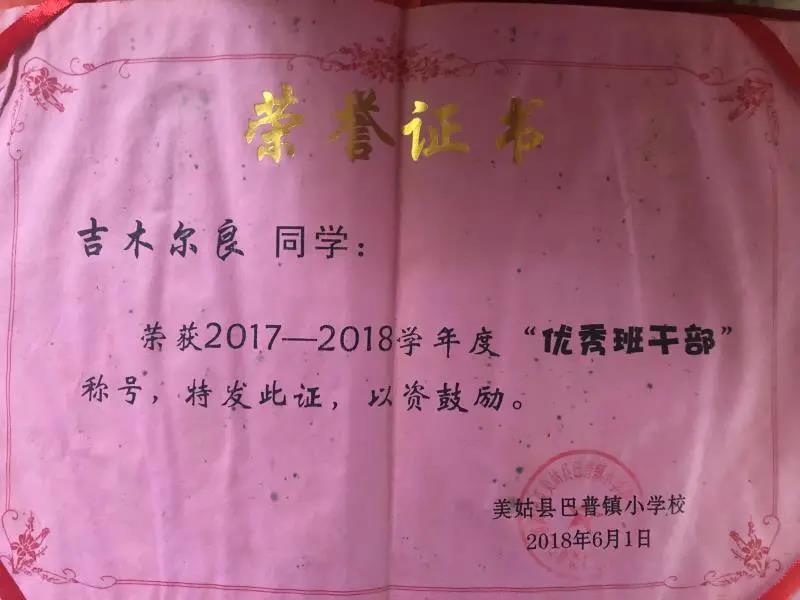 荣誉证书
吉木尔良 同学：
荣获2017—2018学年度“优秀班干部”
称号，特发此证，以资鼓励。
美姑县巴普镇小学校
2018年6月1日